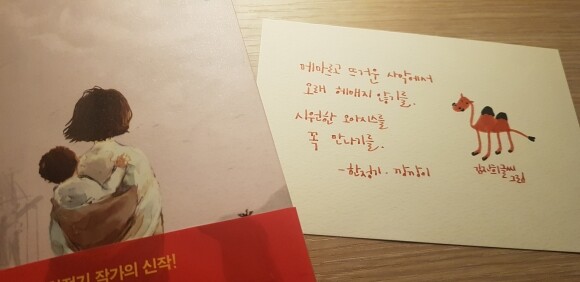 메마르고 뜨거운 사막에서
오래 헤매지 않기를.
시원한 오아시스를
꼭 만나기를.
-한정기. 깡깡이
글씨
그림
작가의 신작!